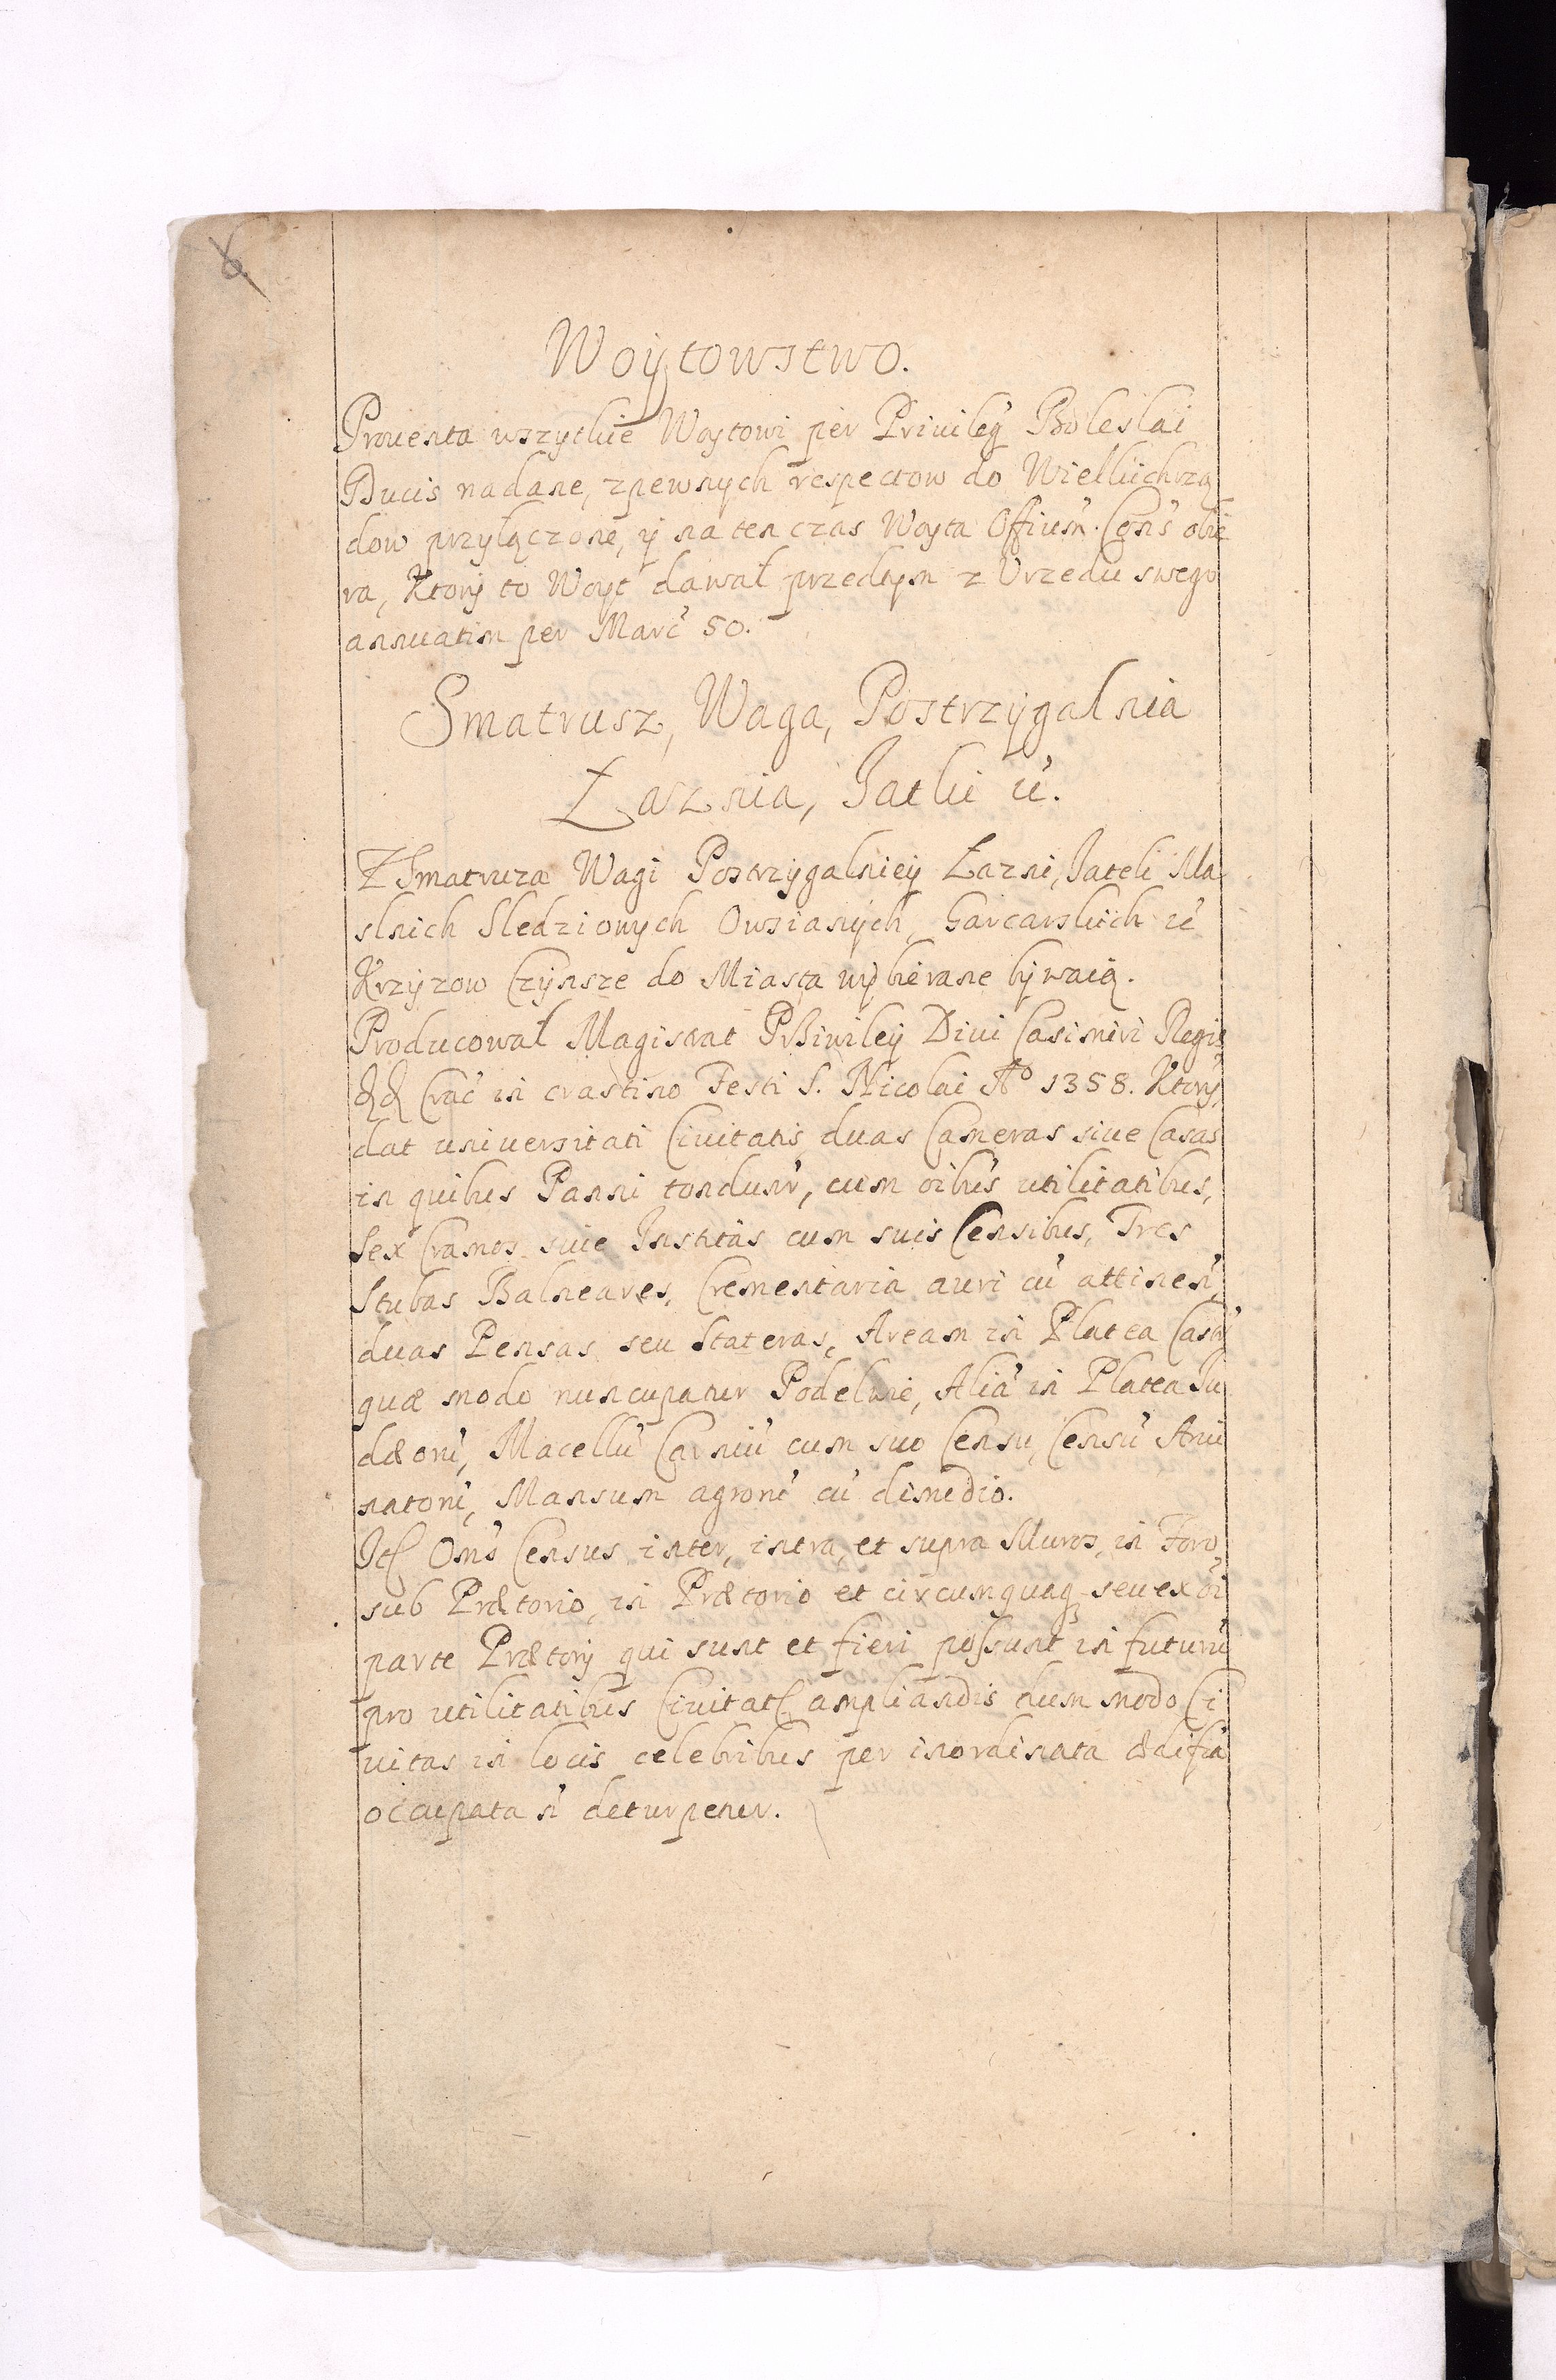 8
Woytowstwo.
Prouenta wszytkie Woytowi per Priuileg Boleslai
Ducis nadane, z pewnych respectow do Wielkichrzą
dow przyłączone, y na ten czas Woyta Offium Cons obie
ra, Ktory to Woyt dawał przedtym z Vrzedu swego
annuatim per Marc 50.
Smatrusz, Waga, Postrzygalnia
Łaznia, Jatki ic.
Z Smatruza Wagi Postrzygalniey Łazni, Jatek Ma
slnich Sledziowych Owsianych, Garcarskich ic
Krzyzow Czynsze do Miasta wybierane bywaią.
Producował Magistrat Priuiley Diui Casimiri Regis
Crac in crastino Festi S. Nicolai Ao 1358. Ktory
dat uniuersitati Ciuitatis duas Cameras siue Casas
in quibus Panni tondunr, cum oibus utilitatibus,
Sex Cramos siue Institas cum suis Censibus, Tres
Stubas Balneares, Crementaria auri cu attinen,
duas Pensas seu Stateras, Aream in Platea Casim
quæ modo nuncupatur Podelwie, Alia in Platea Iu
dæoru, Macellu Carniu cum suo Censu, Censu Aui
natoru, Mansum agroru cu dimedio.
Oms Census inter, intra, et supra Muros, in Foro,
sub Prætorio, in Prætorio et circumquaq seu ex oi
parte Prætorij qui sunt et fieri possunt in futuru
pro utilitatibus Ciuitat ampliandis dum modo Ci
uitas in locis celebribus per inordinata ædifia
occupata n deturpetur.